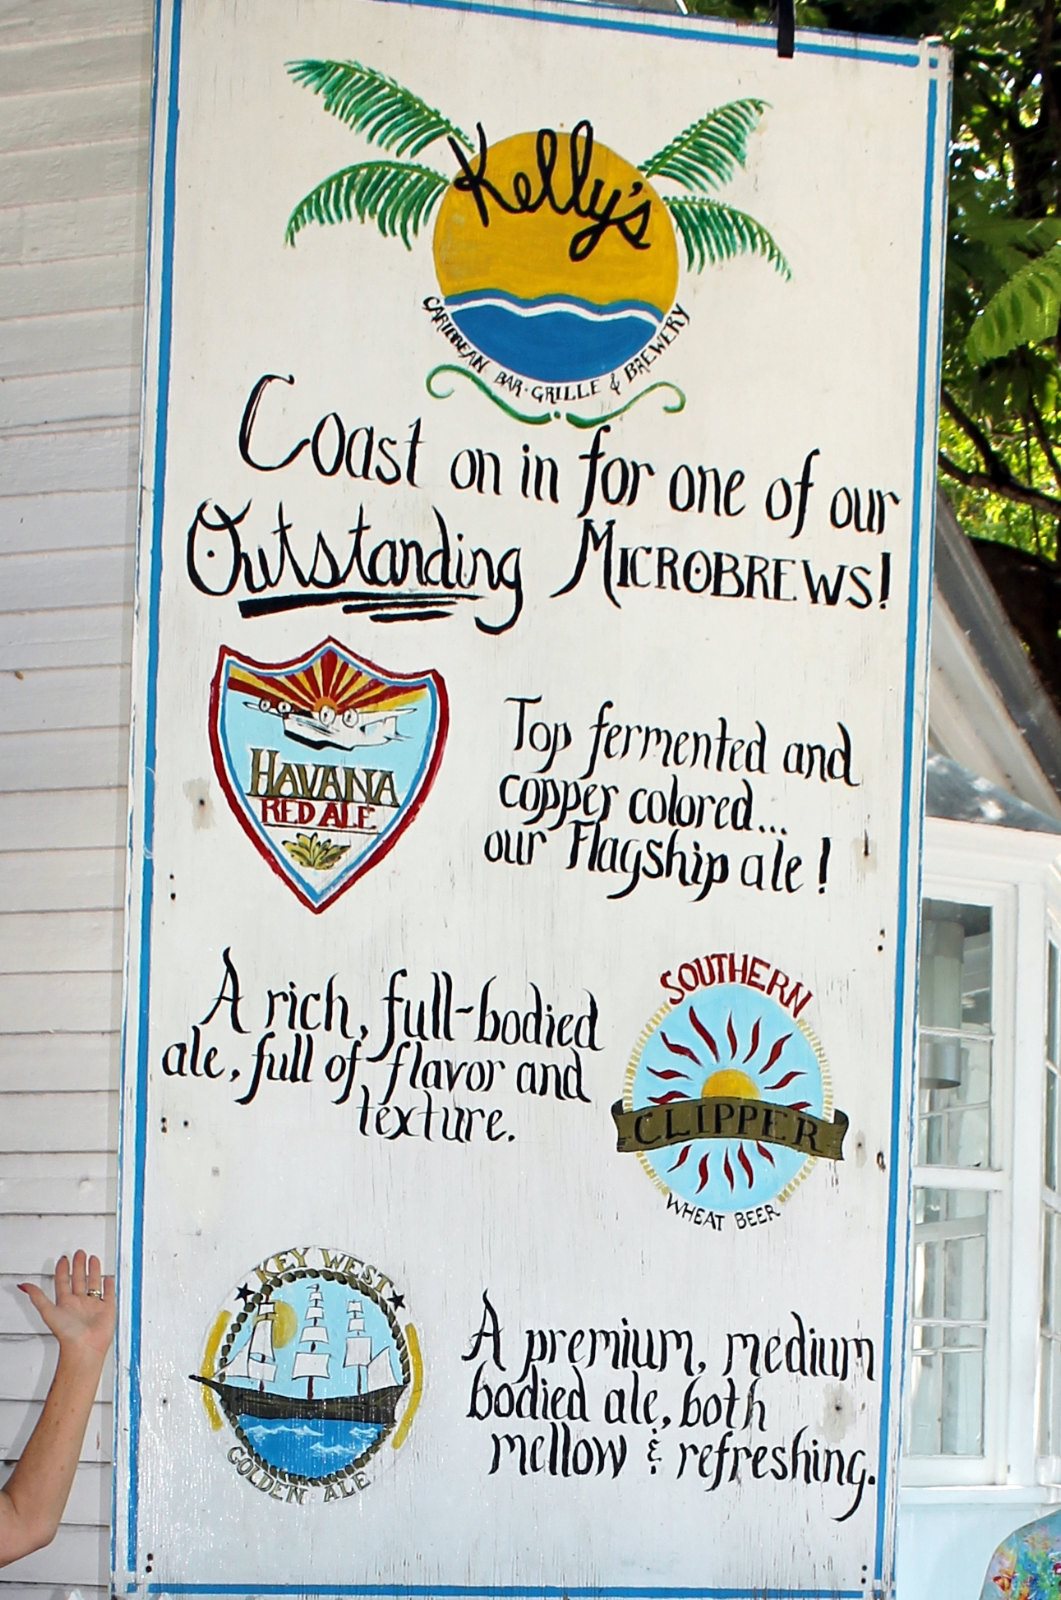 Kelly's
CARIBBEAN BAR·GRILLE & BREWERY
Coast on in for one of our
Outstanding MICROBREWS!
HAVANA
RED ALE
Top fermented and
copper colored...
our Flagship ale!
A rich, full-bodied
ale, full of flavor and
texture.
SOUTHERN
CLIPPER
WHEAT BEER
KEY WEST
GOLDEN ALE
A premium, medium
bodied ale, both
mellow & refreshing.